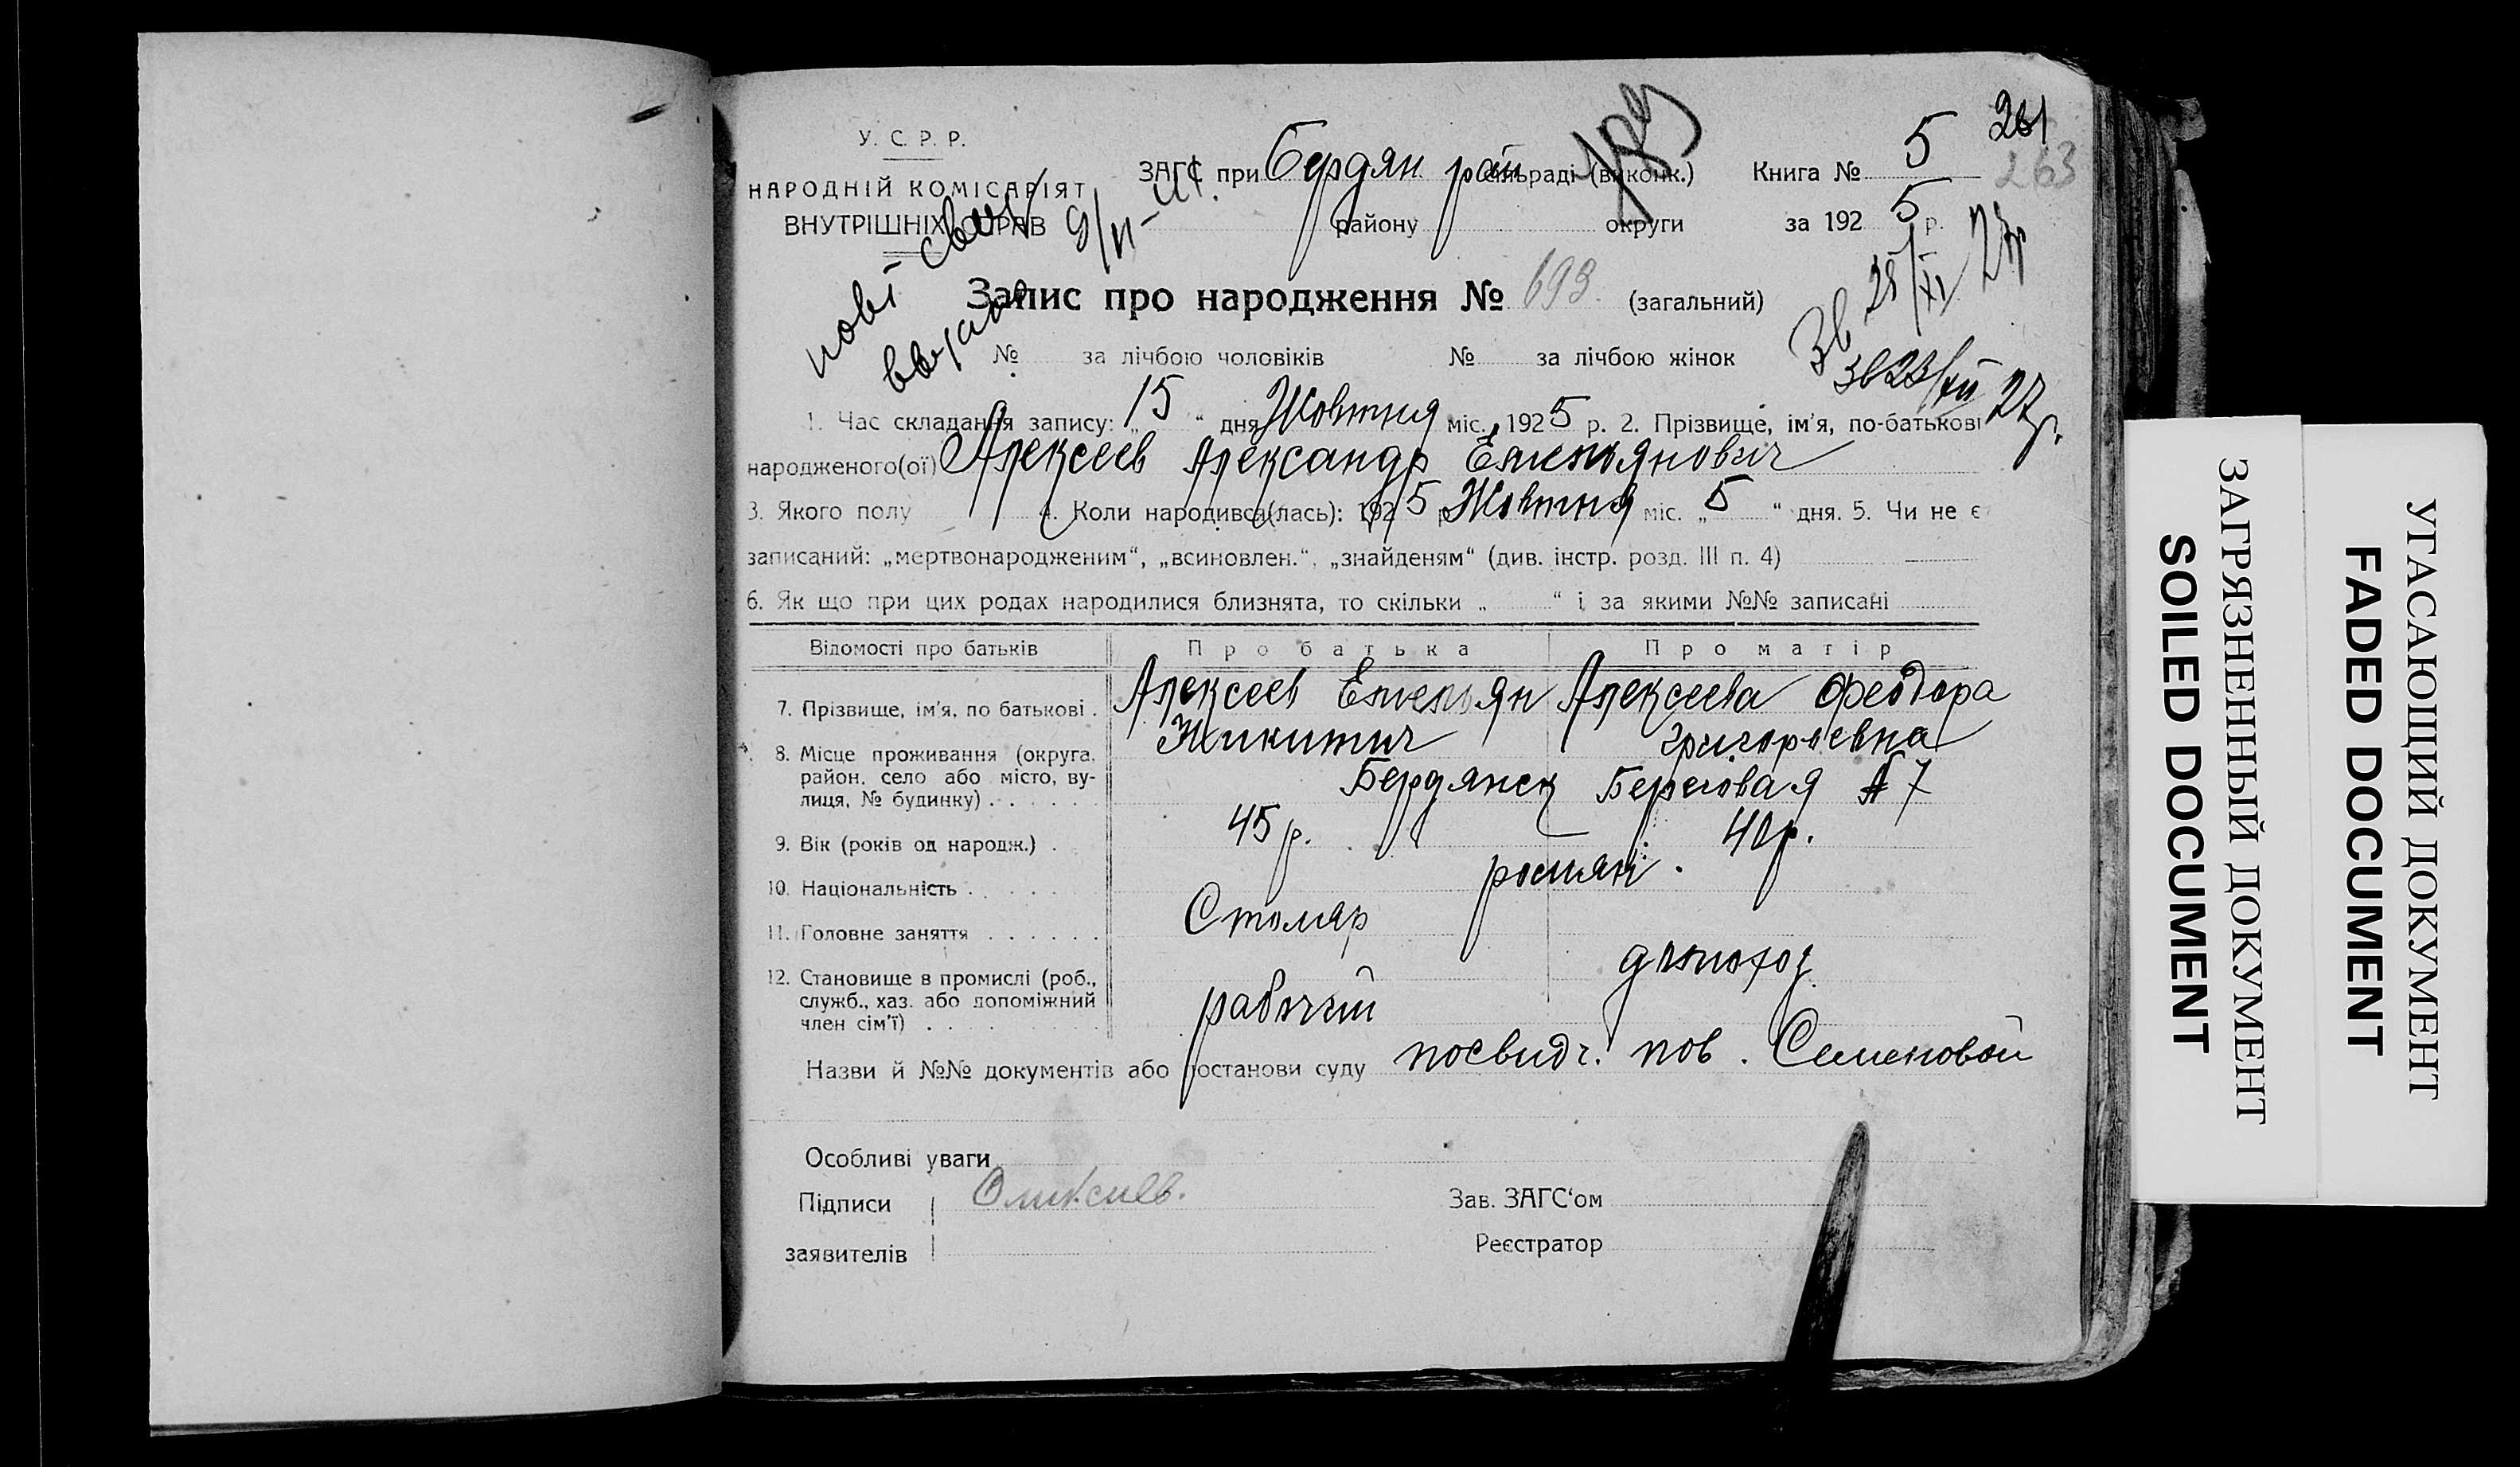 261
263
У. С. Р. Р.
НАРОДНІЙ КОМІСАРІЯТ
ВНУТРІШНІХ СПРАВ
ЗАГС при Бердян рай сільраді (виконк.) Книга № 5
району округи за 1925 р.
Запис про народження № 693. (загальний)
нові
Зв 28/XI 27р
Зв 23/XII 27р.
№ за лічбою чоловіків № за лічбою жінок
1. Час складання запису: „15“ дня Жовтня міс. 1925 р. 2. Прізвище, ім'я, по-батькові
народженого(ої) Алексеев Александр Емельянович
3. Якого полу 4. Коли народився(лась): 1925 р. Жовтня міс. „5“ дня. 5. Чи не є
записаний: „мертвонародженим“, „всиновлен.“, „знайденям“ (див. інстр. розд. III п. 4) —
6. Як що при цих родах народилися близнята, то скільки „ “ і за якими №№ записані
Відомості про батьків Про батька Про матір
7. Прізвище, ім'я, по батькові . Алексеев Емельян Никитич Алексеева Феодора Григорьевна
8. Місце проживання (округа, район, село або місто, вулиця, № будинку) . Бердянск Береговая № 7
9. Вік (років од народж.) . 45 р. 40 р.
10. Національність . росіяни.
11. Головне заняття . Столяр
12. Становище в промислі (роб., служб., хаз. або допоміжний член сім'ї) . рабочий
Назви й №№ документів або постанови суду посвидч. пов. Семеновой
Особливі уваги
Підписи заявителів Олексиев.
Зав. ЗАГС'ом
Реєстратор
ЗАГРЯЗНЕННЫЙ ДОКУМЕНТ
SOILED DOCUMENT
УГАСАЮЩИЙ ДОКУМЕНТ
FADED DOCUMENT